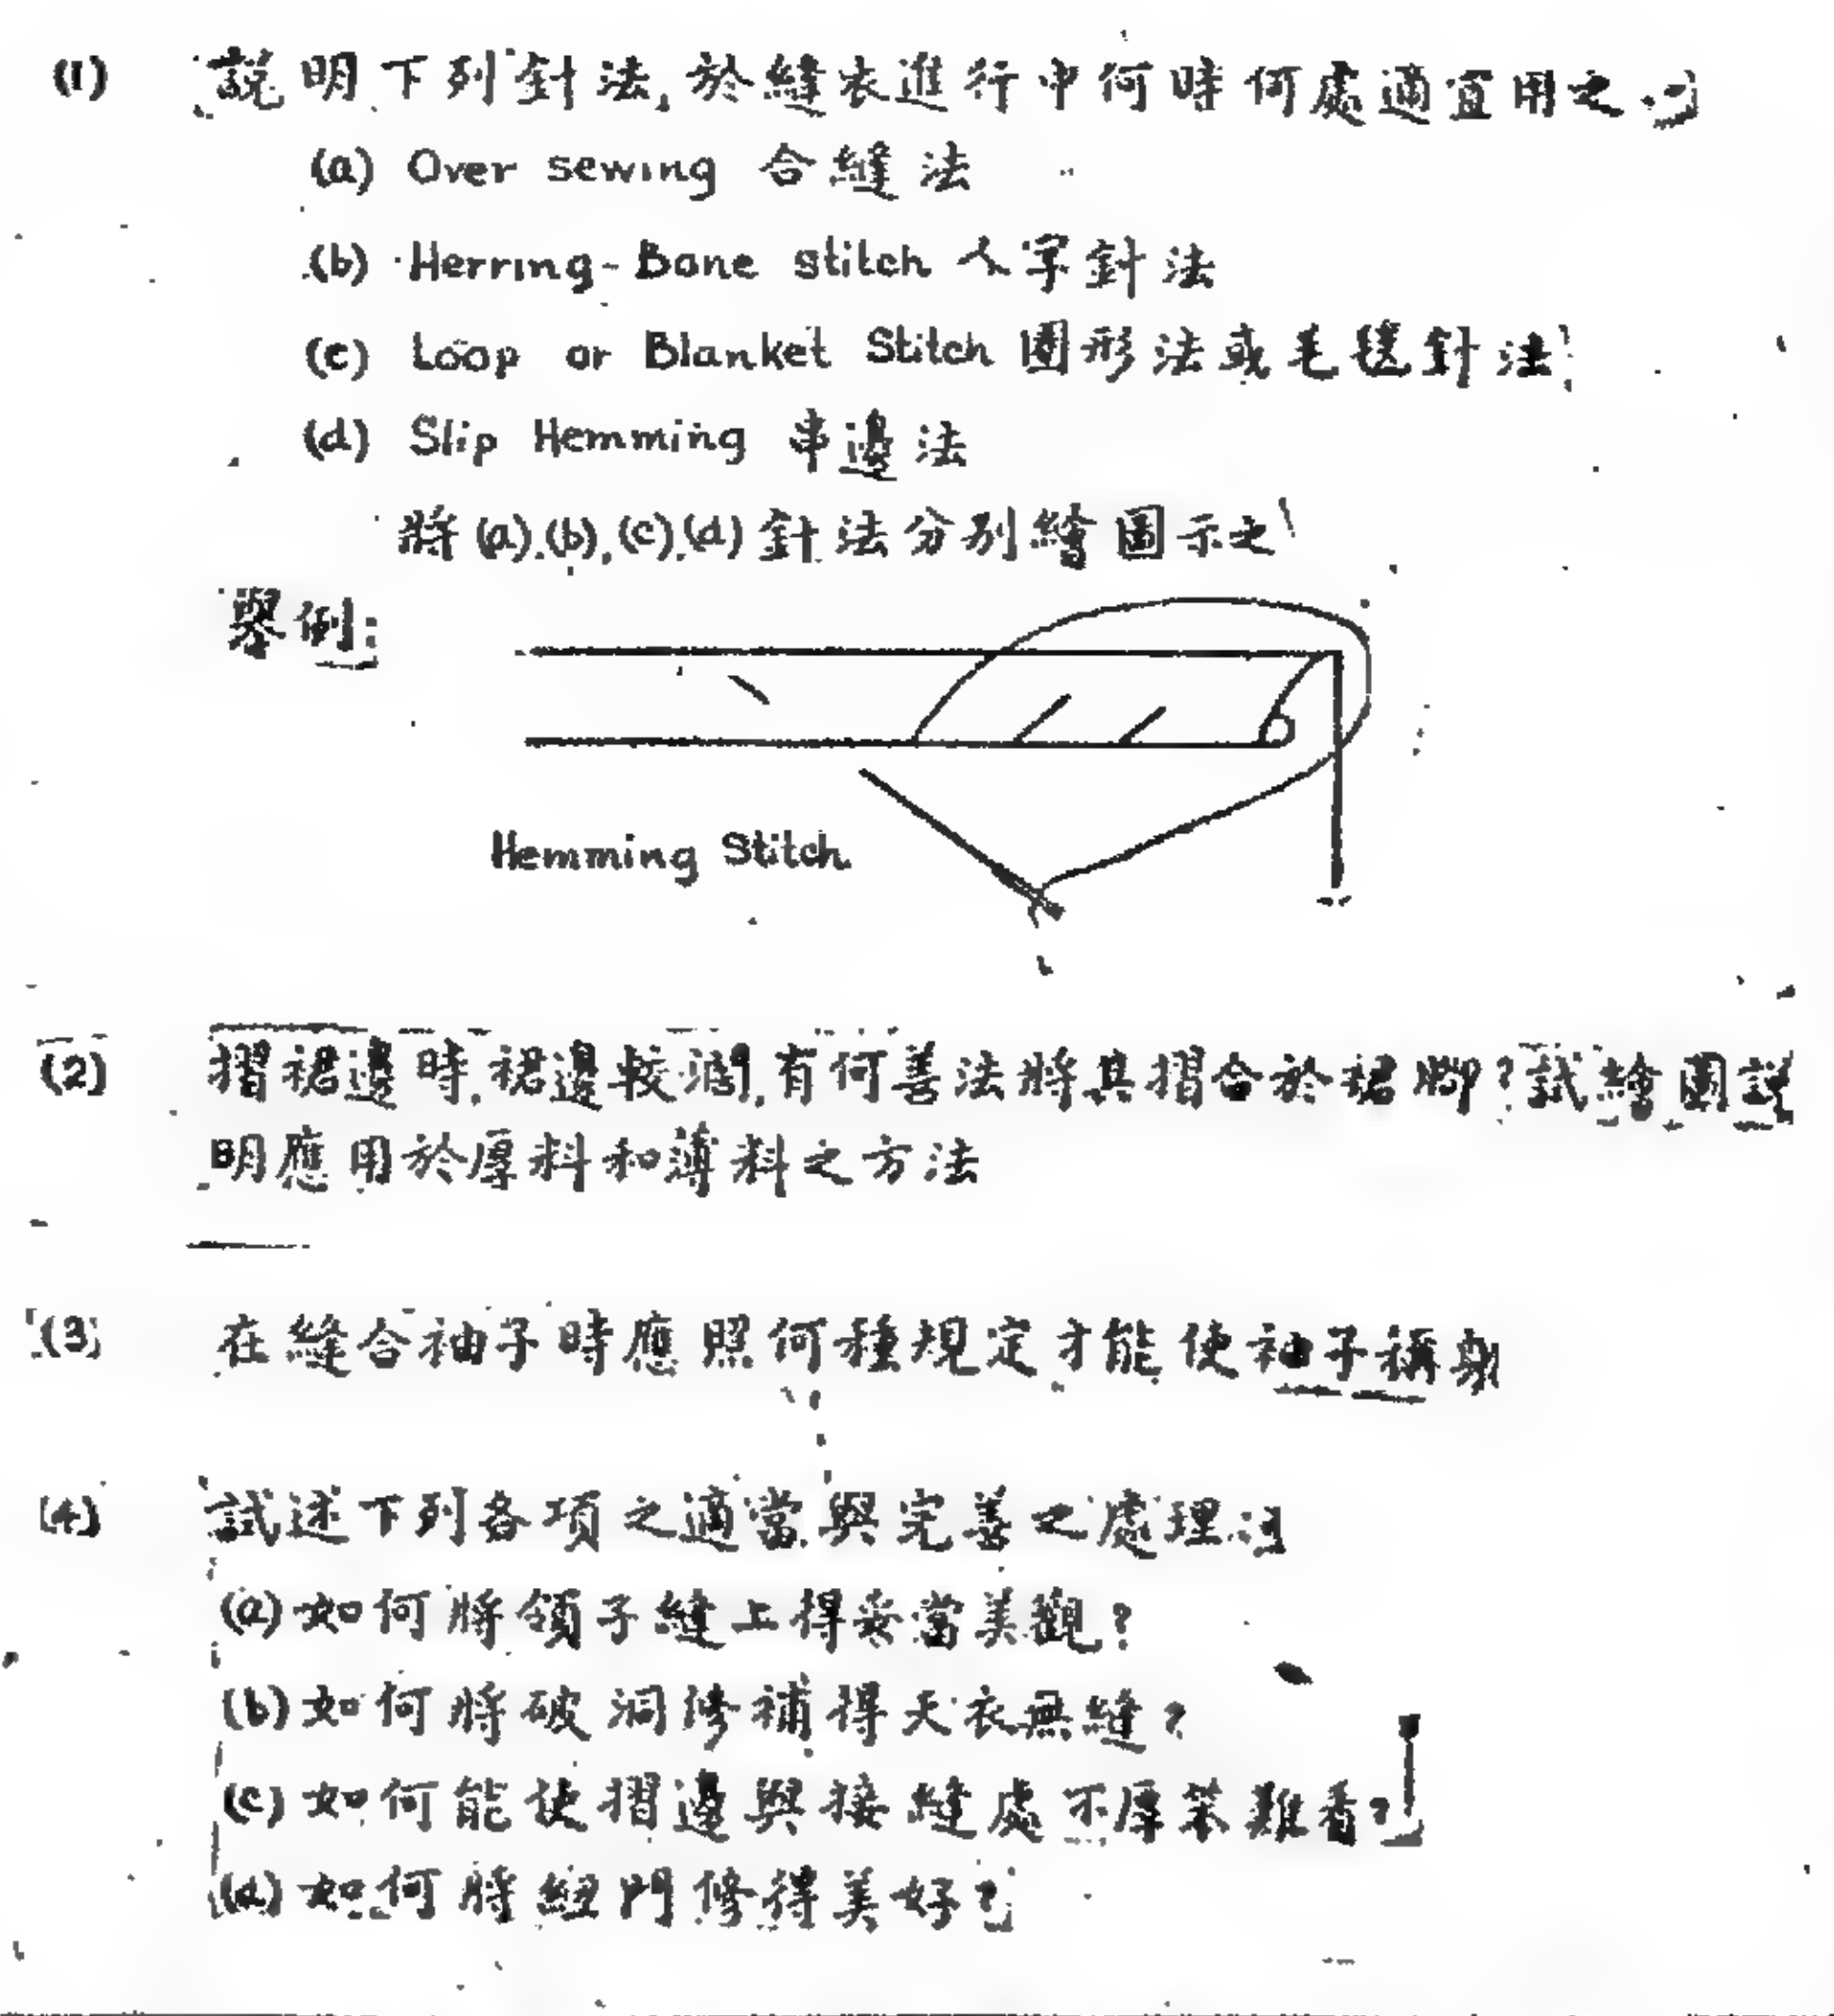 (1) 説明下列針法,於縫衣進行中何時何處適宜用之.
(a) Over sewing 合縫法
(b) Herring-Bone stitch 人字針法
(c) Loop or Blanket Stitch 圈形法或毛毯針法
(d) Slip Hemming 串邊法
將(a).(b).(c).(d)針法分別繪圖示之
舉例:
Hemming Stitch
(2) 摺裙邊時,裙邊較濶,有何善法將其摺合於裙脚?試繪圖説
明應用於厚料和薄料之方法
(3) 在縫合袖子時應照何種規定才能使袖子稱身
(4) 試述下列各項之適當與完善之處理法
(a) 如何將領子縫上得妥當美觀?
(b) 如何將破洞修補得天衣無縫?
(c) 如何能使摺邊與接縫處不厚笨難看?
(d) 如何將鈕門修得美好?